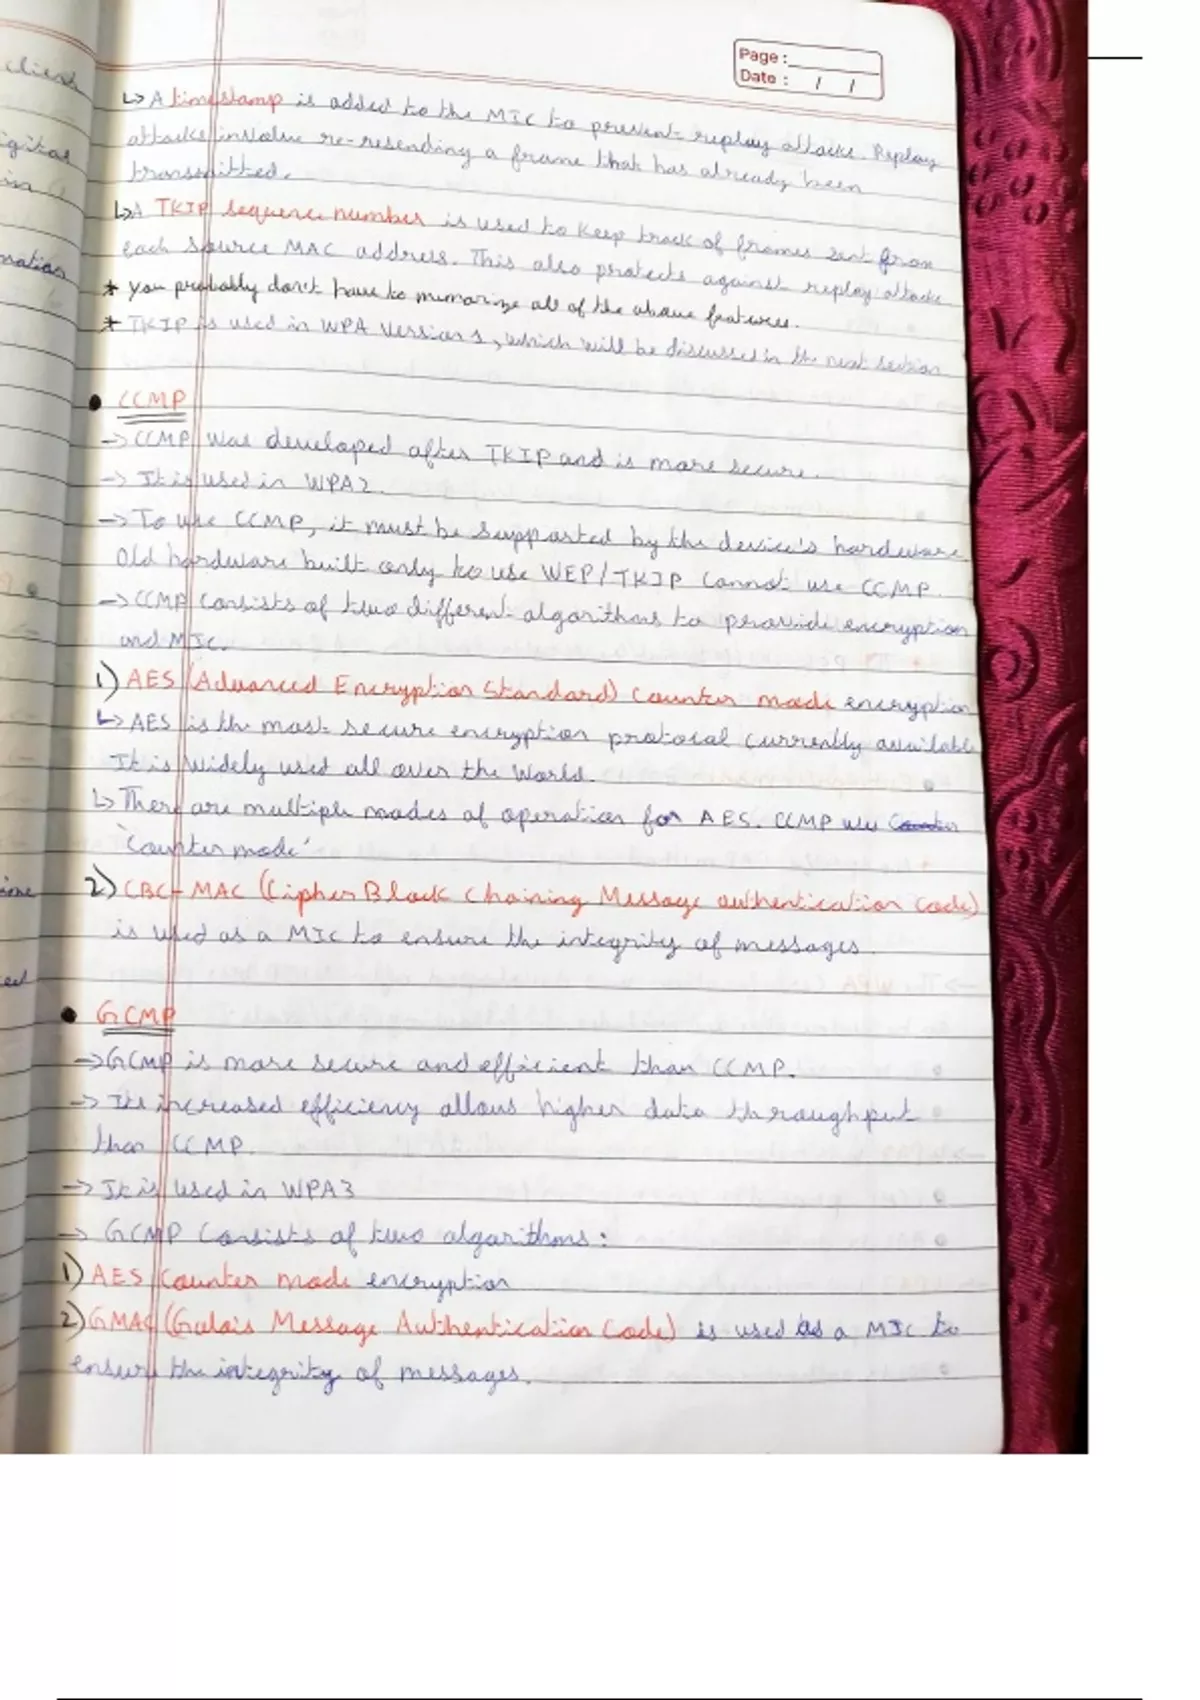 Page :
Date : / /
client
igital
in a
mation
↳ A timestamp is added to the MIC to prevent replay attacks. Replay
attacks involve re-resending a frame that has already been
transmitted.
↳A TKIP sequence number is used to keep track of frames sent from
each source MAC address. This also protects against replay attacks
* you probably don't have to memorize all of the above features.
* TKIP is used in WPA Version 1, which will be discussed in the next section
• CCMP
→ CCMP was developed after TKIP and is more secure.
→ It is used in WPA2.
→ To use CCMP, it must be supported by the device's hardware
Old hardware built only to use WEP/TKIP cannot use CCMP.
→ CCMP consists of two different algorithms to provide encryption
and MIC.
1) AES (Advanced Encryption Standard) counter mode encryption
↳ AES is the most secure encryption protocol currently available
It is widely used all over the World.
↳ There are multiple modes of operation for AES. CCMP use
'Counter mode'
2) CBC-MAC (Cipher Block Chaining Message authentication code)
is used as a MIC to ensure the integrity of messages.
• GCMP
→ GCMP is more secure and efficient than CCMP.
→ Its increased efficiency allows higher data throughput
than CCMP.
→ It is used in WPA3
→ GCMP Consists of two algorithms :
1) AES Counter mode encryption
2) GMAC (Galois Message Authentication Code) is used as a MIC to
ensure the integrity of messages.